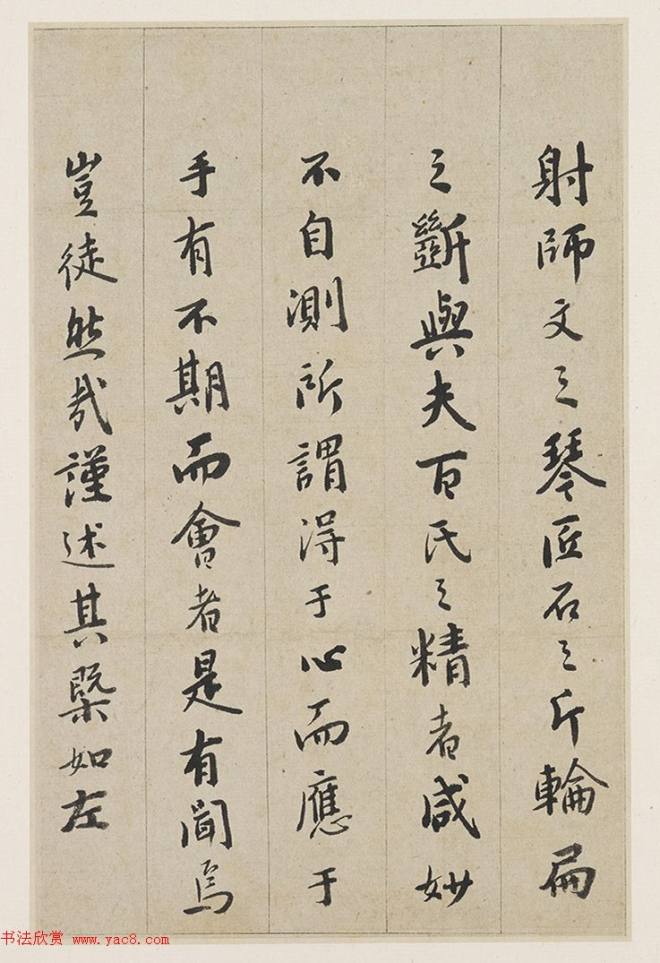 射師文之琴匠石之斤輪扁
之斲與夫百氏之精者咸妙
不自測所謂淂于心而應于
手有不期而會者是有闻焉
豈徒然哉謹述其槩如左
书法欣赏 www.yac8.com